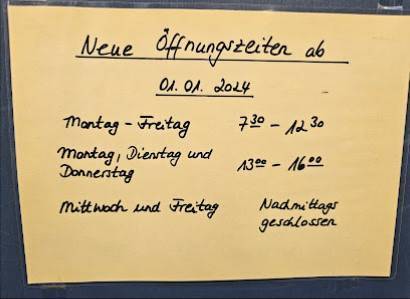 Neue Öffnungszeiten ab
01.01. 2024
Montag - Freitag 7³⁰ - 12³⁰
Montag, Dienstag und
Donnerstag 13⁰⁰ - 16⁰⁰
Mittwoch und Freitag Nachmittags
geschlossen